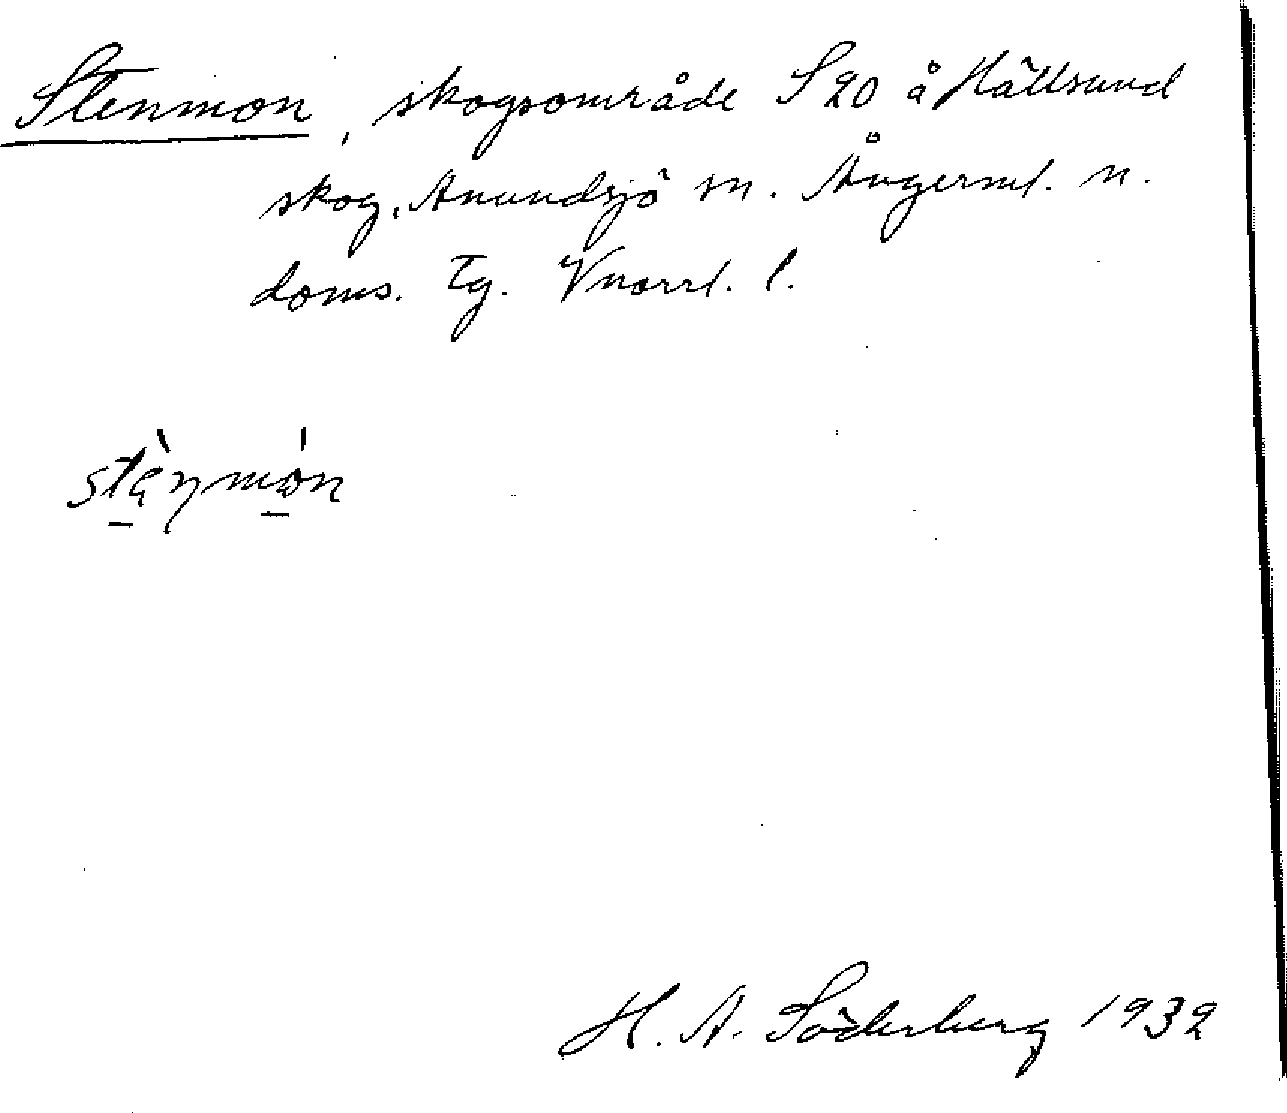 Stenmon, skogsområde S 20 å Hällsund
skog, Anundsjö sn. Ångerml. n.
doms. tg. Vnorrl. l.
H. A. Söderberg 1932